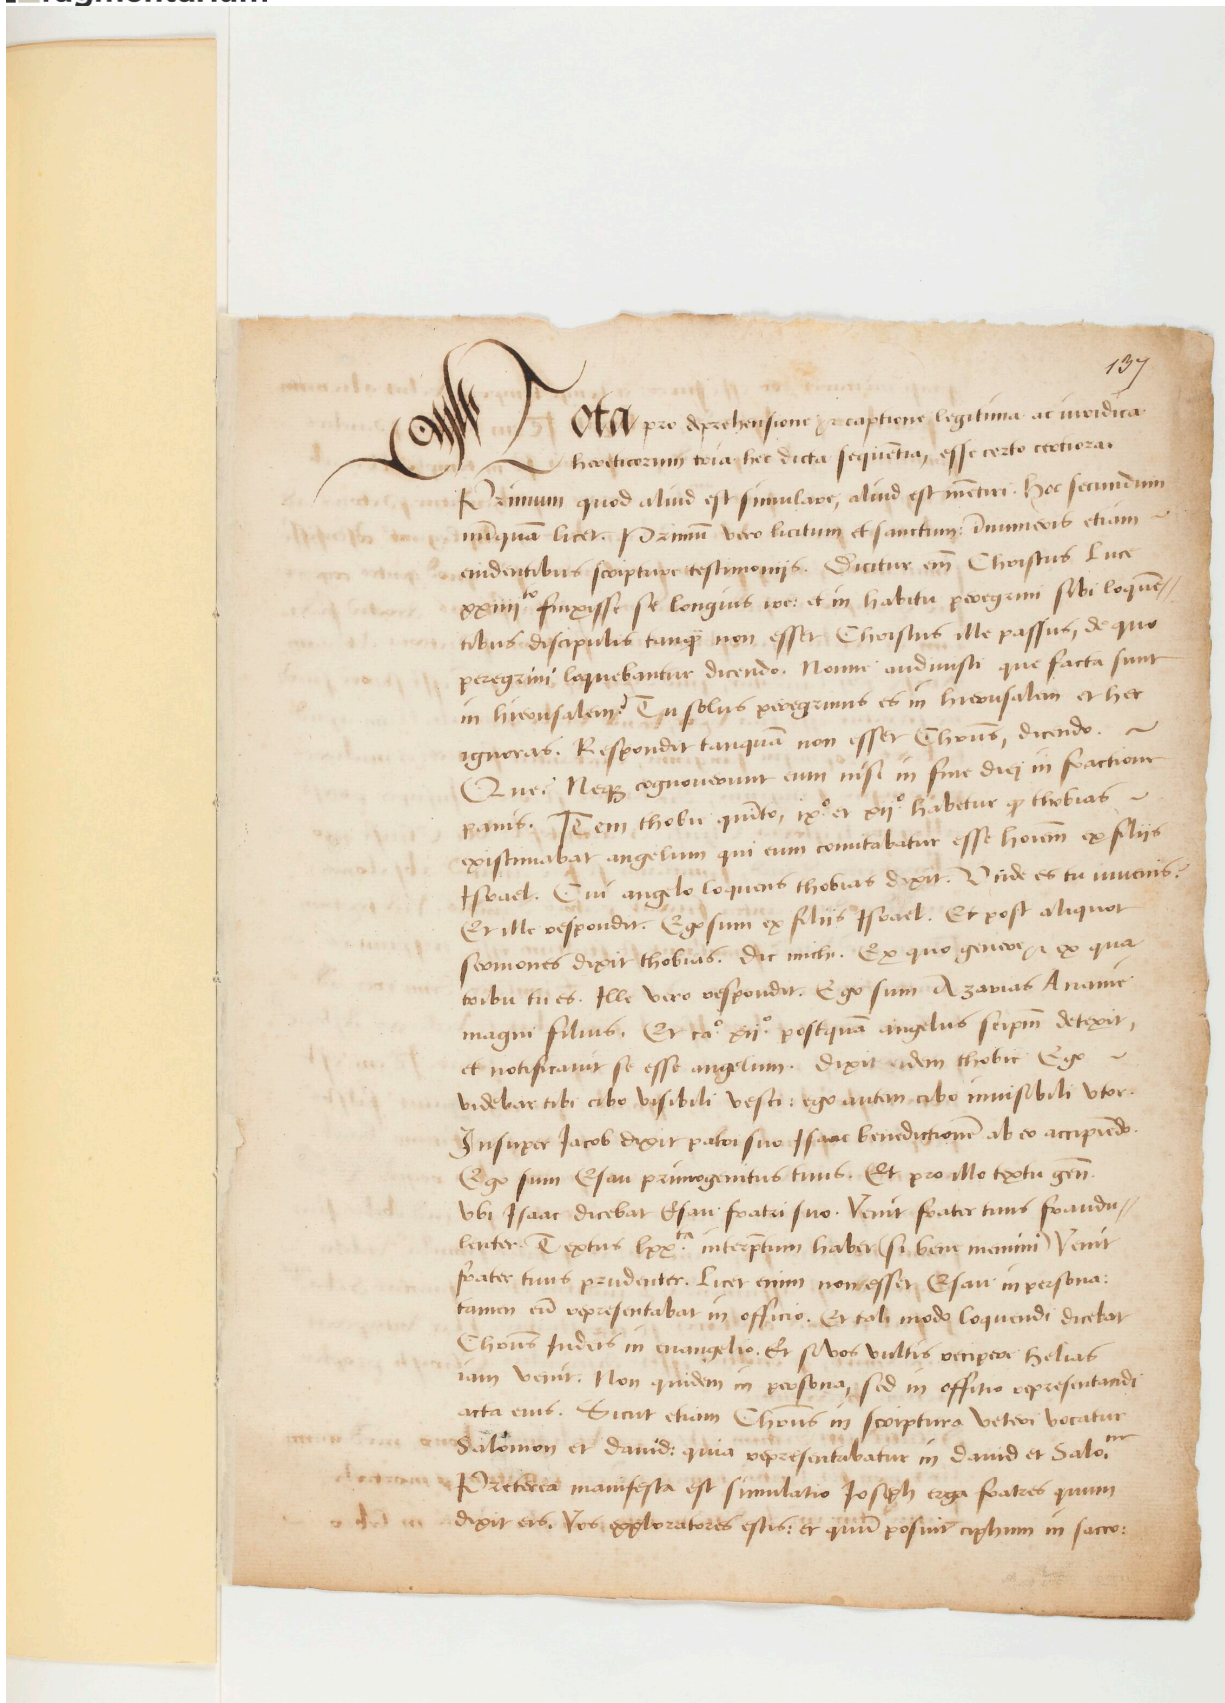 137
Nota pro deprehensione et captione legitima ac iuridica
hereticorum tria hec dicta sequentia, esse certo certiora.
Primum quod aliud est simulare, aliud est mentiri. Hoc secundum
nūquā licet. Primū vero licitum et sanctum: īnumeris etiam
euidentibus scripture testimonijs. Dicitur em̄ Christus Luce
xxiiijto finxisse se longius ire: et in habitu peregrini sibi loquē//
tibus discipulis tanq̄ non esset Christus ille passus, de quo
peregrini loquebantur dicendo. Nonne audiuisti que facta sunt
in hierusalem? Tu solus peregrinus es in hierusalem et hec
ignoras. Respondit tanquā non esset Chrūs, dicendo.
Que? Neqȝ cognouerunt eum nisi in fine diej in fractione
panis. Item thobie quīto, ixº et xijº habetur ꝙ thobias
existimabat angelum qui eum comitabatur esse hoiem̄ ex filijs
Israel. Cui angelo loquens thobias dixit. Vnde es tu iuuenis?
Et ille respondit. Ego sum ex filijs Israel. Et post aliquot
sermones dixit thobias. Dic michi. Ex quo genere et ex qua
tribu tu es. Ille vero respondit. Ego sum Azarias Ananie
magni filius. Et caº. xijº. postquā angelus seipm̄ detexit,
et notificauit se esse angelum. dixit eidem thobie Ego
videbar tibi cibo visibili vesci: ego autem cibo inuisibili vtor.
Insuper Jacob dixit patri suo Isaac benedictionē ab eo accipiēdo.
Ego sum Esau primogenitus tuus. Et pro illo textu gen̄.
vbi Isaac dicebat Esau fratri suo. Venit frater tuus fraudu//
lenter. Textus lxx.ta interp̄tum habet (si bene memini) Venit
frater tuus prudenter. Licet enim non esset Esau in persona:
tamen eū representabat in officio. Et tali modo loquendi dicebat
Chrūs Judeis in euangelio. Et si vos vultis recipere helias
iam venit. Non quidem in persona, sed in offitio representandi
acta eius. Sicut etiam Chrūs in scriptura veteri vocatur
Salomon et dauid: quia representabatur in dauid et Salo.ne
Preterea manifesta est simulatio Joseph erga fratres quum
dixit eis. Vos exploratores estis: et quū posuit ciphum in sacco: